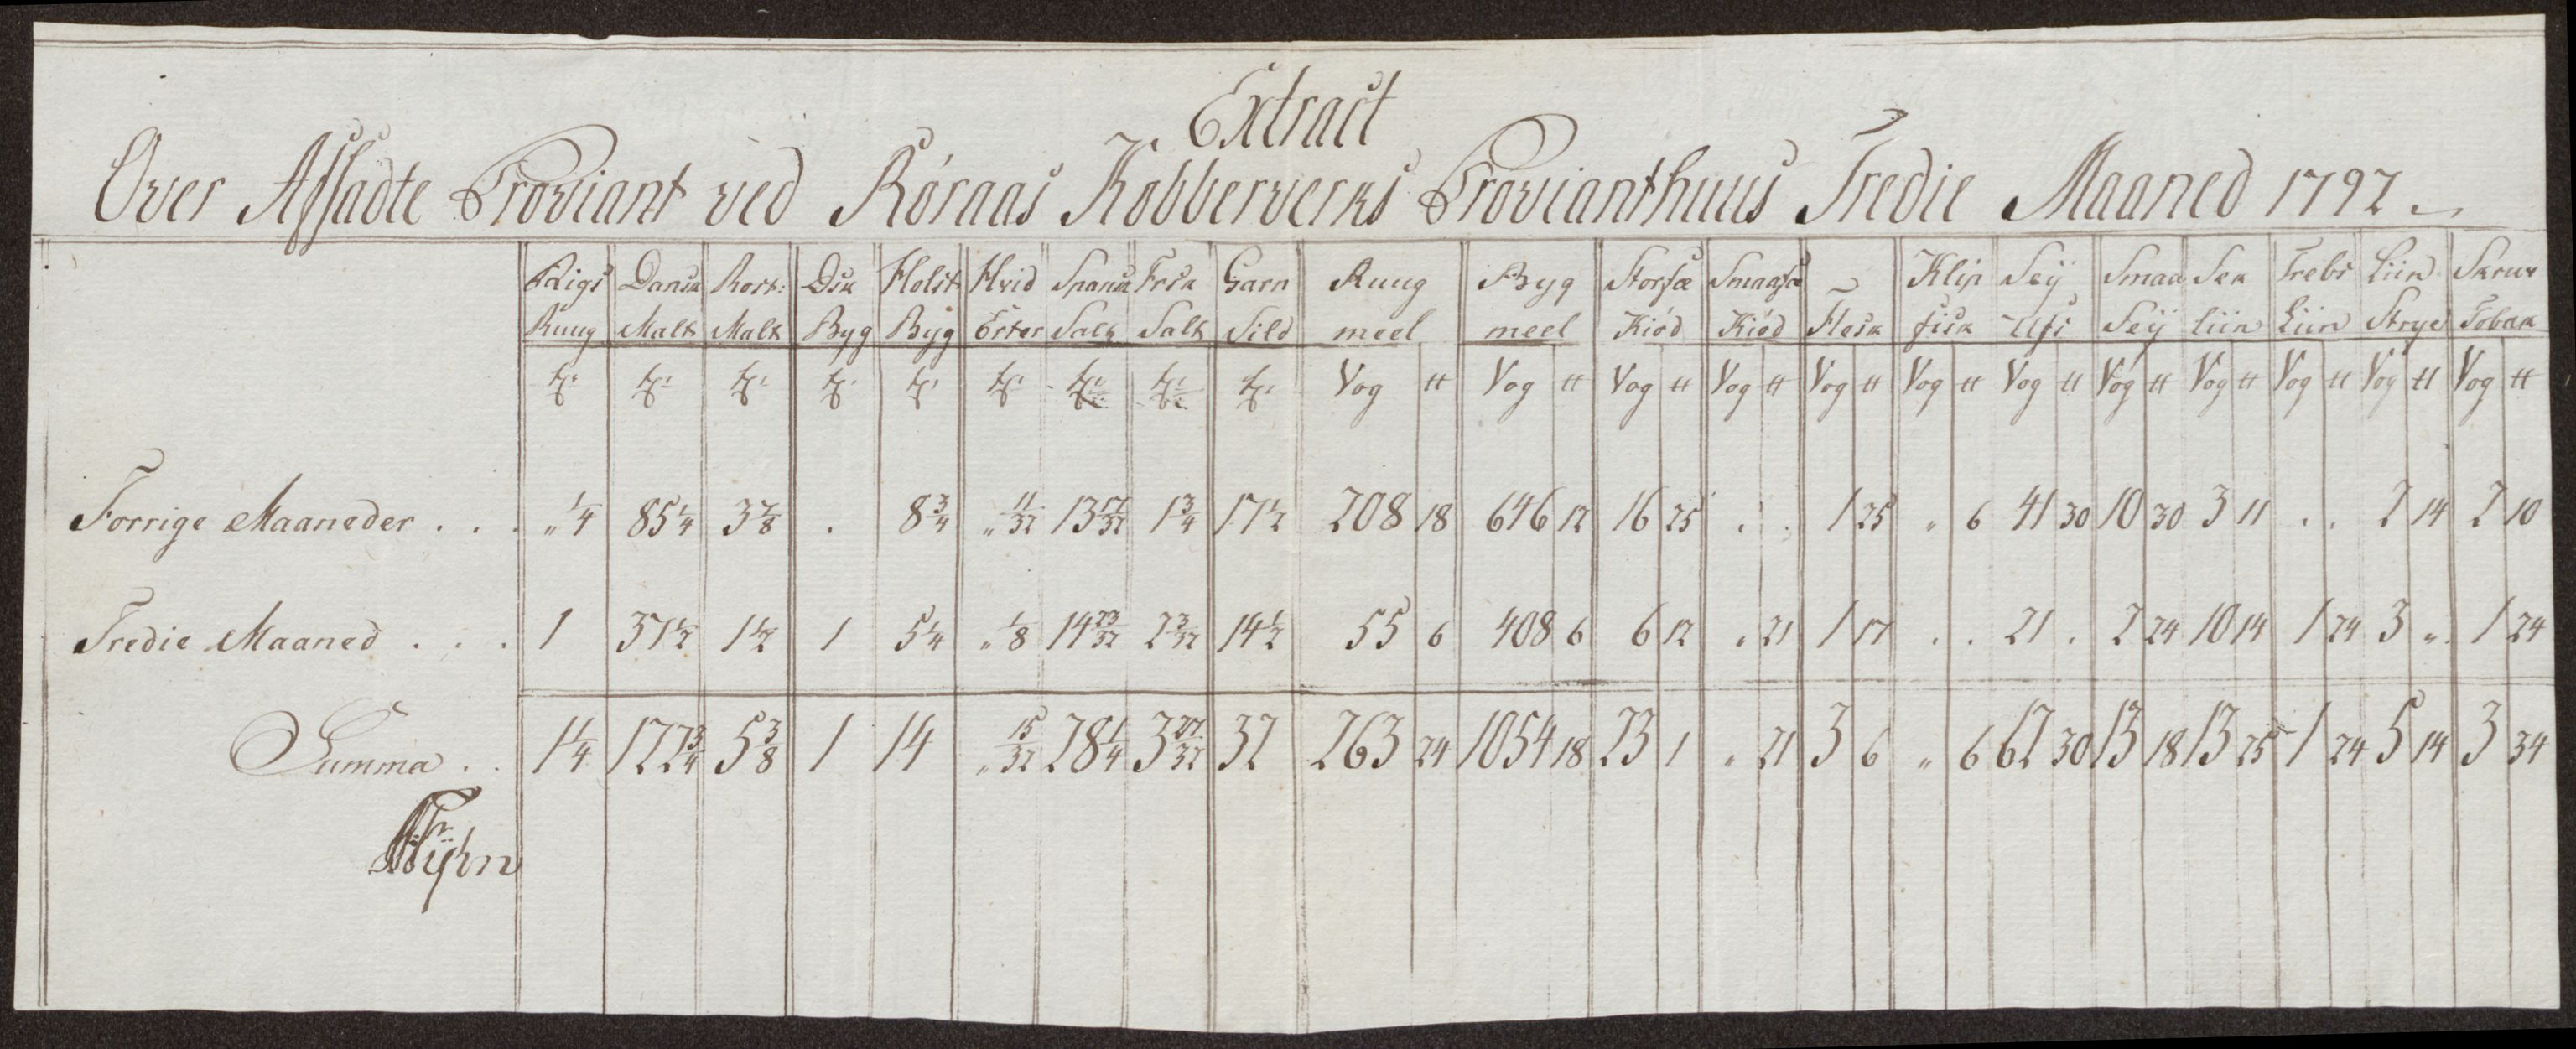 Extract
Over Afsadte Proviant ved Röraas Kobberverks Provianthuus Tredie Maaned 1792
Rigs Ruug Dansk Malt Rost: Malt Dsk Byg Holst Byg Hvid Erter Spansk Salt Frsk Salt Garn Sild Ruug meel Byg meel Storfæ Kiød Smaafæ Kiød Flesk Klip fisk Seÿ Ufs Smaa Seÿ Sek Liin Trebs Liin Liin Strye Skruv Tobak
Vog ℔ Vog ℔ Vog ℔ Vog ℔ Vog ℔ Vog ℔ Vog ℔ Vog ℔ Vog ℔ Vog ℔ Vog ℔ Vog ℔
Forrige Maaneder . . . „ 1/4 85 1/4 3 7/8 . 8 3/4 „ 11/32 13 17/32 1 3/4 17 1/2 208 18 646 12 16 25 . . 1 25 „ 6 41 30 10 30 3 11 . . 2 14 2 10
Tredie Maaned . . . 1 37 1/2 1 1/2 1 5 1/4 „ 1/8 14 23/32 2 3/32 14 1/2 55 6 408 6 6 12 „ 21 1 17 . . 21 . 2 24 10 14 1 24 3 „ 1 24
Summa . . 1 1/4 122 3/4 5 3/8 1 14 „ 15/32 28 1/4 3 27/32 32 263 24 1054 18 23 1 „ 21 3 6 „ 6 62 30 13 18 13 25 1 24 5 14 3 34